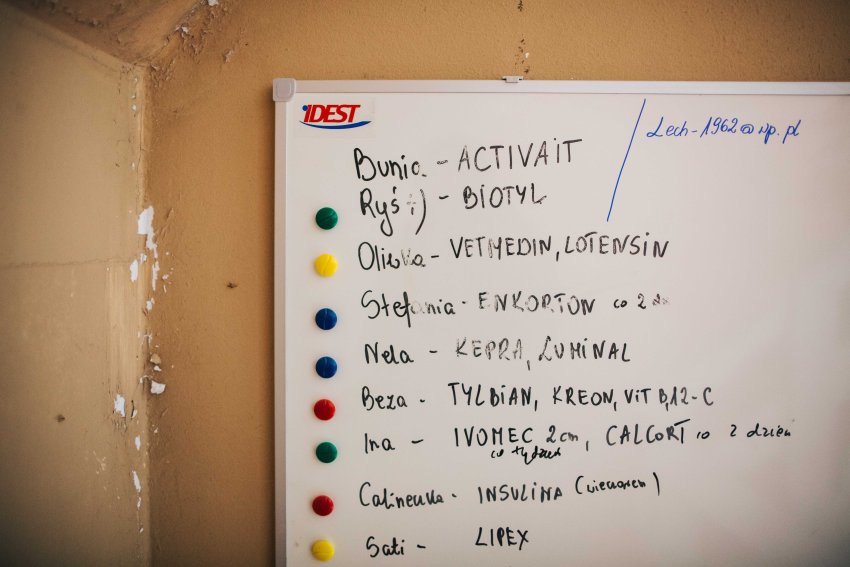 iDEST
Lech-1962@wp.pl
Bunia - ACTIVAiT
Ryś :) - BiOTYL
Oliwka - VETMEDIN, LOTENSiN
Stefania - ENKORTON co 2
Nela - KEPRA, LUMiNAL
Beza - TYLBiAN, KREON, ViT B,12-C
Ina - IVOMEC 2cm, CALCORT co 2 dzień
co tydzień
Calineczka - INSULiNA (wieczorem)
Sati - LIPEX